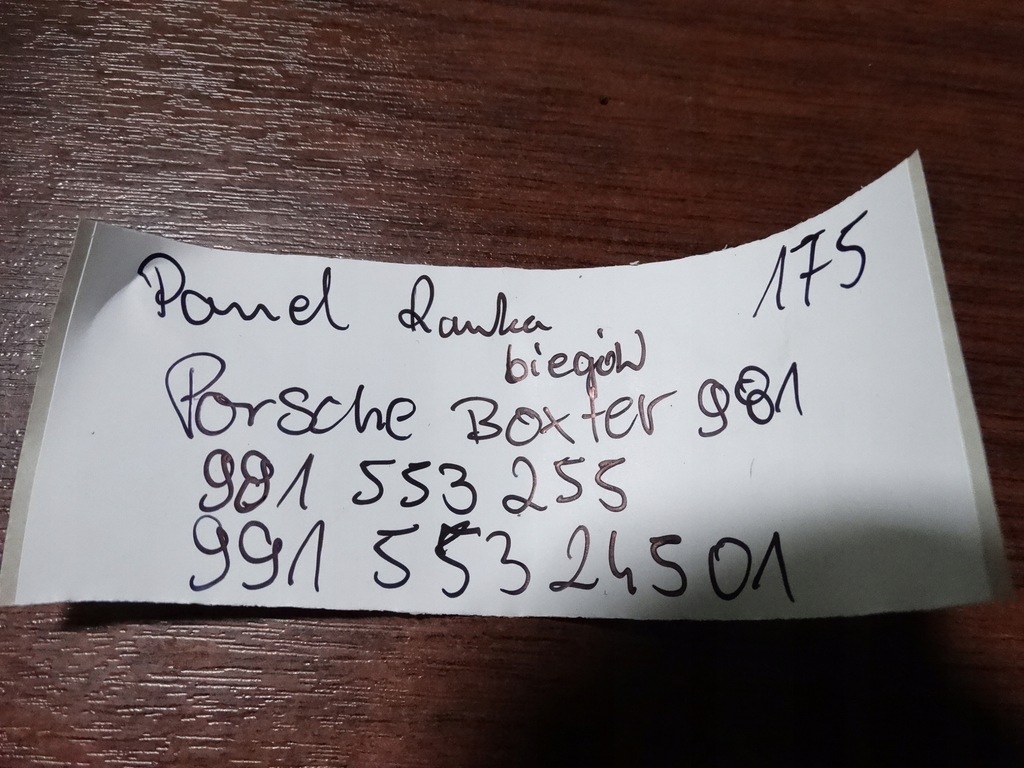 Panel Ramka 175
biegów
Porsche Boxter 981
981 553 255
991 553 245 01